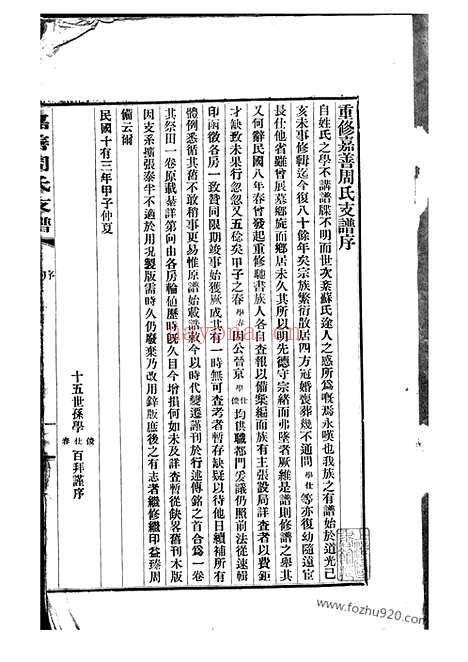 重修嘉善周氏支譜序
自姓氏之學不講譜牒不明而世次紊蘇氏途人之惑所爲嘅焉永嘆也我族之有譜始於道光己
亥未事修輯迄今復八十餘年矣宗族繁衍散居四方冠婚喪葬幾不通問學仕等亦復幼隨宦
長仕他省雖曾展墓鄉旋而鄉居未久其所以明先德守宗緒而弗墜者厥維是譜則修譜之舉其
又何辭民國八年春曾發起重修馳書族人各自查報以備彙編而族有主張設局詳查者以費鉅
才缺致未果行忽忽又五稔矣甲子之春學春因公晉京學仕儍均供職都門爰議仍照前法從速輯
印函徵各房一致贊同限期竣事始獲厥成其有一時無可查考者暫存缺疑以待他日續補所有
體例悉循其舊不敢稍事更易惟原譜始載譜敘今以時代變遷謹刊於行述傳銘之首合爲一卷
其祭田一卷原載綦詳第向由各房輪値歷時既久目今增損何如未及詳查暫從缺畧舊刊木版
因支系擴張泰半不適於用現製版需時久仍廢棄乃改用鉛版庶後之有志者繼修繼印益臻周
備云爾
民國十有三年甲子仲夏
十五世孫學儍仕春百拜謹序
嘉善周氏支譜
序
dayonai.com
www.fozhu920.com